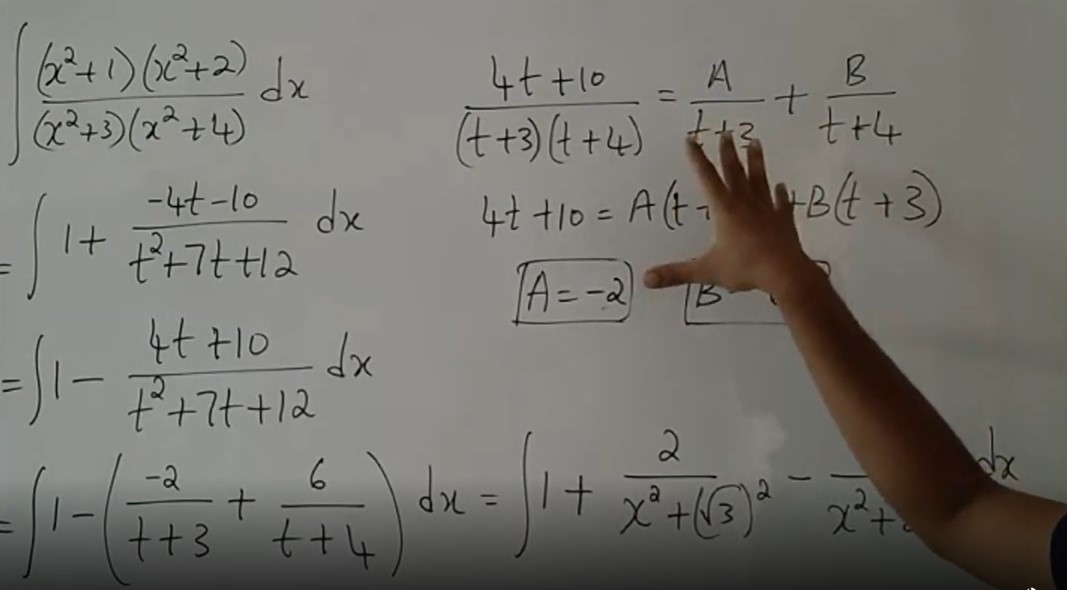 ∫ (x²+1)(x²+2) / (x²+3)(x²+4) dx
= ∫ 1 + (-4t-10) / (t²+7t+12) dx
= ∫ 1 - (4t+10) / (t²+7t+12) dx
= ∫ 1 - ( -2/(t+3) + 6/(t+4) ) dx = ∫ 1 + 2 / (x²+(√3)²) - / x²+ dx
(4t+10) / (t+3)(t+4) = A/(t+3) + B/(t+4)
4t+10 = A(t +B(t+3)
A = -2 B